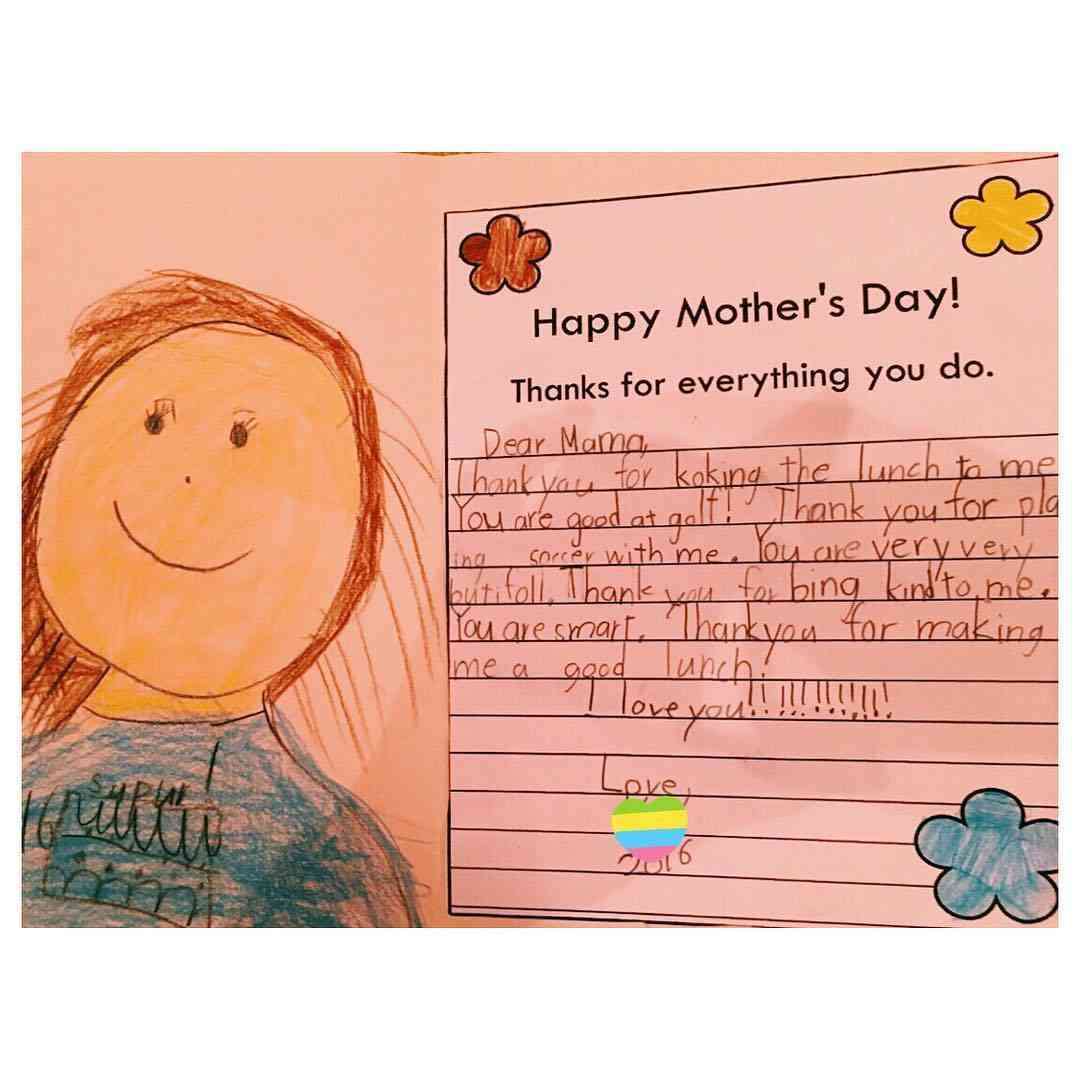 Happy Mother's Day!
Thanks for everything you do.
Dear Mama,
Thank you for koking the lunch to me
You are good at golf! Thank you for pla
ing soccer with me. You are very very
butifoll. Thank you for bing kind to me.
You are smart. Thank you for making
me a good lunch!
I love you!!!!!!!!!!!
Love,
2016